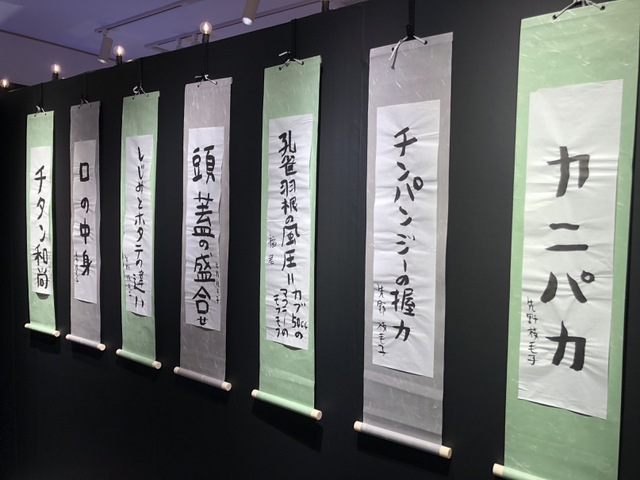 カニパカ
チンパンジーの握力
孔雀羽根の風圧=
カブ50ccの
マフラーの
モフモフ
頭蓋の盛合せ
しじみとホタテの違い
口の中身
チタン和尚